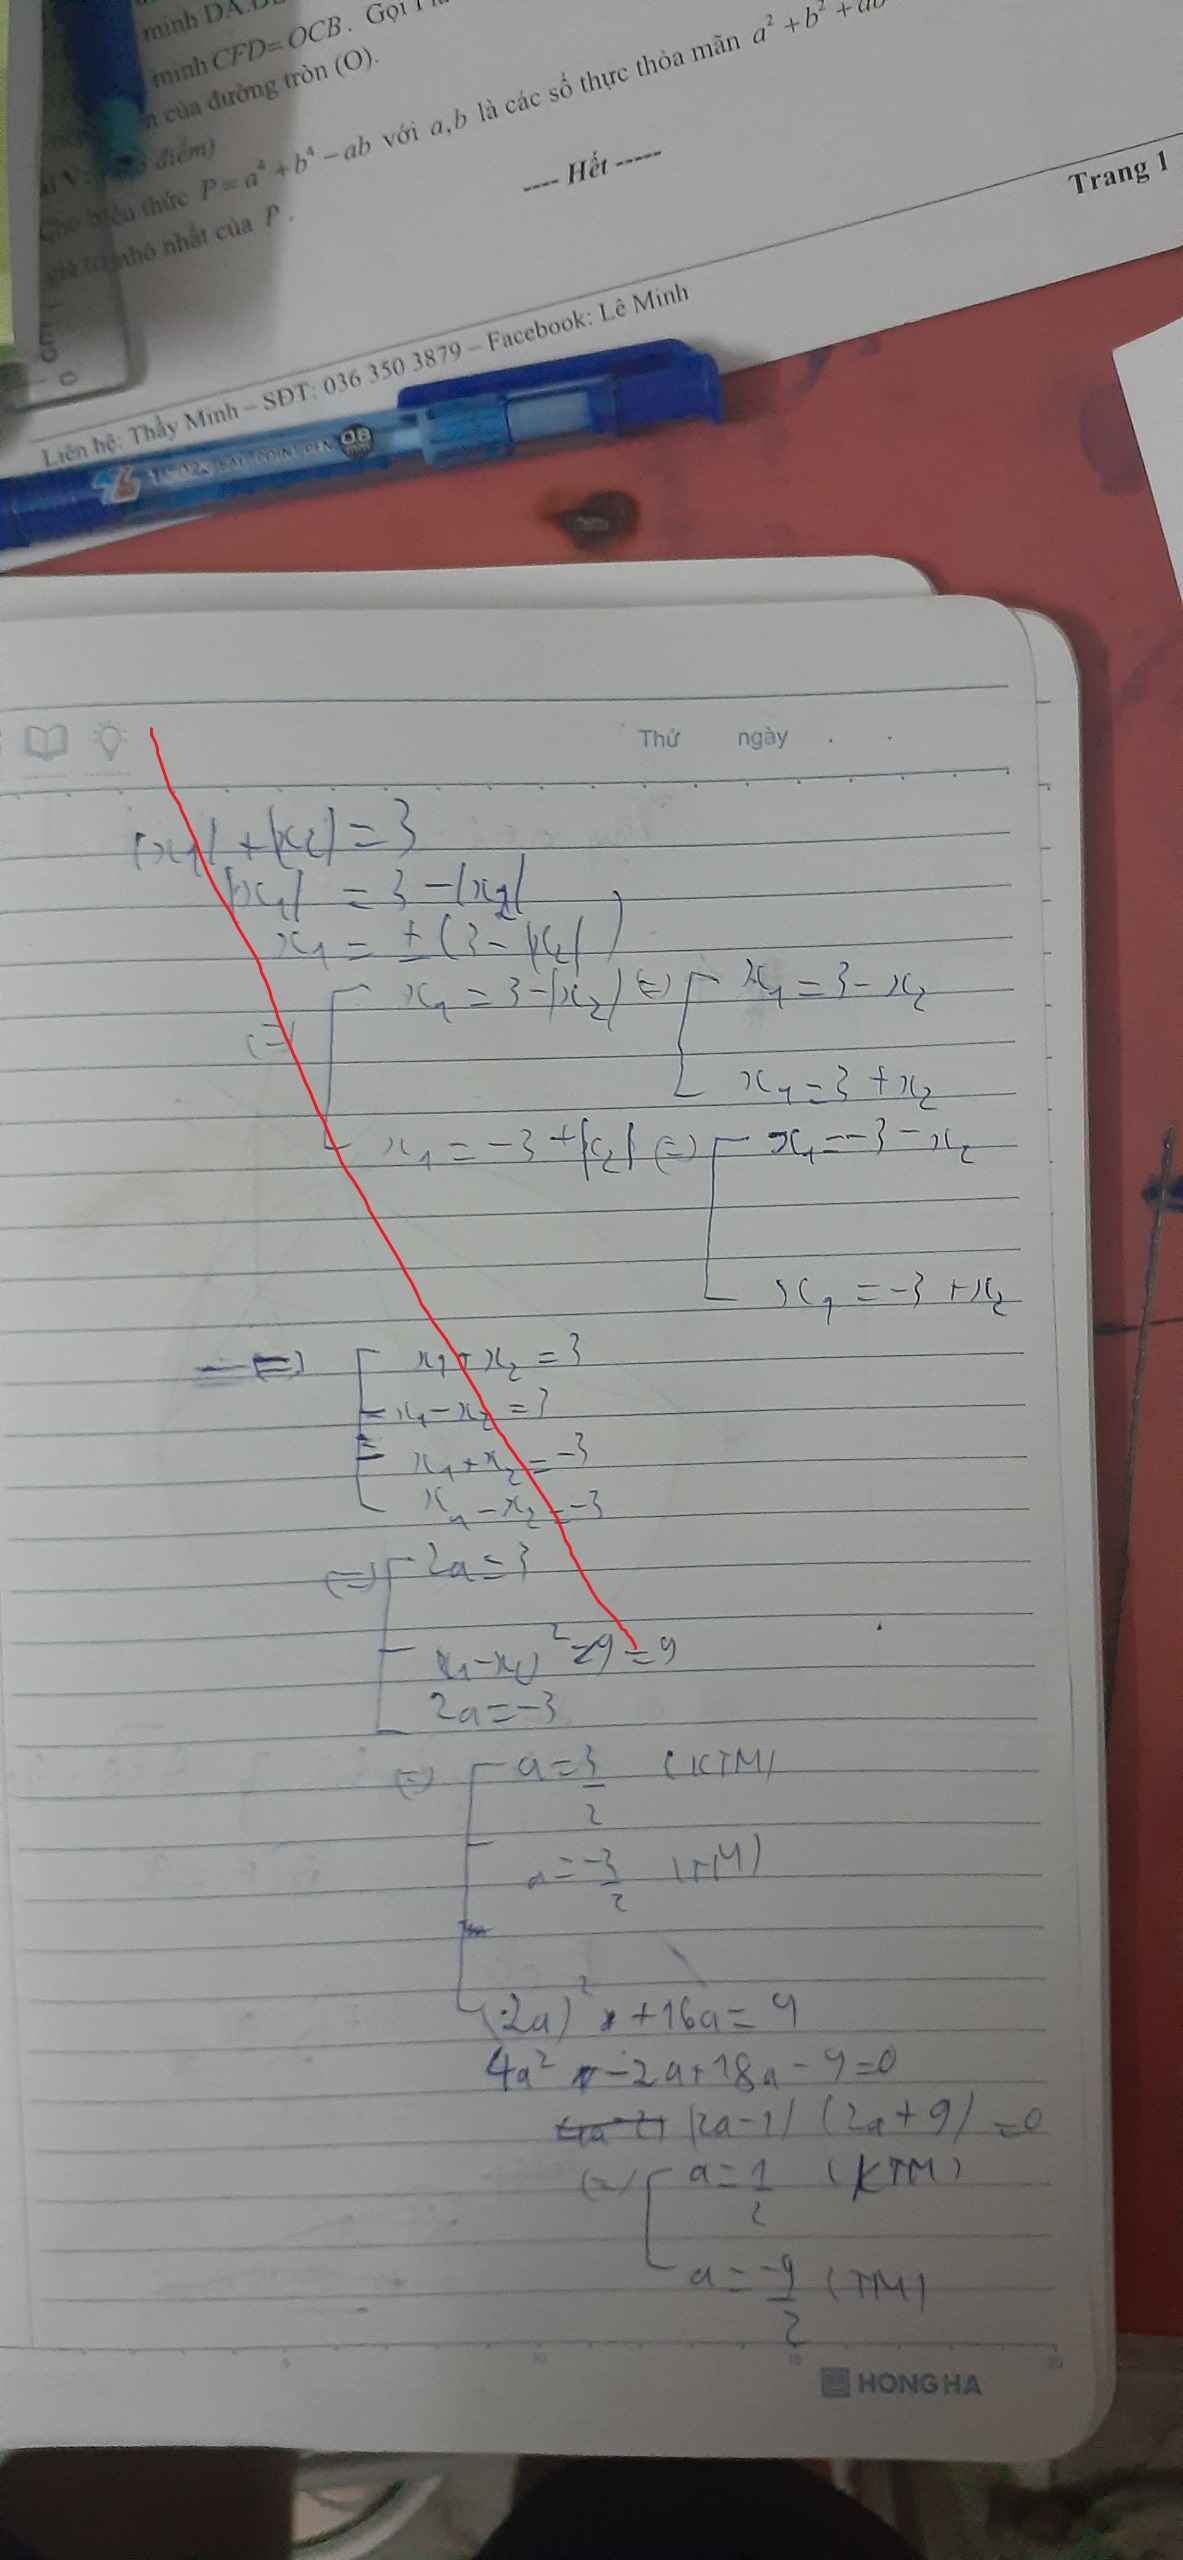 minh DA.
minh CFD= OCB. Gọi
của đường tròn (O).
điểm)
Cho biểu thức P = a⁴ + b⁴ − ab với a,b là các số thực thỏa mãn a² + b² + ab
giá trị nhỏ nhất của P.
---- Hết -----
Trang 1
Liên hệ: Thầy Minh – SĐT: 036 350 3879 – Facebook: Lê Minh
08
cm
0
Thứ ngày . .
|x₁| + |x₂| = 3
|x₁| = 3 − |x₂|
x₁ = ± (3 − |x₂|)
(=) x₁ = 3 − |x₂| (=) x₁ = 3 − x₂
x₁ = 3 + x₂
x₁ = −3 + |x₂| (=) x₁ = −3 − x₂
x₁ = −3 + x₂
(=) x₁ + x₂ = 3
x₁ − x₂ = 3
x₁ + x₂ = −3
x₁ − x₂ = −3
(=) 2a = 3
x₁ − x₂)² = 9
2a = −3
(=) a = 3/2 (KTM)
a = −3/2 (TM)
(2a)² + 16a = 9
4a² − 2a + 18a − 9 = 0
(2a − 1) (2a + 9) = 0
(=) a = 1/2 (KTM)
a = −9/2 (TM)
5 10 15 20
HONG HA